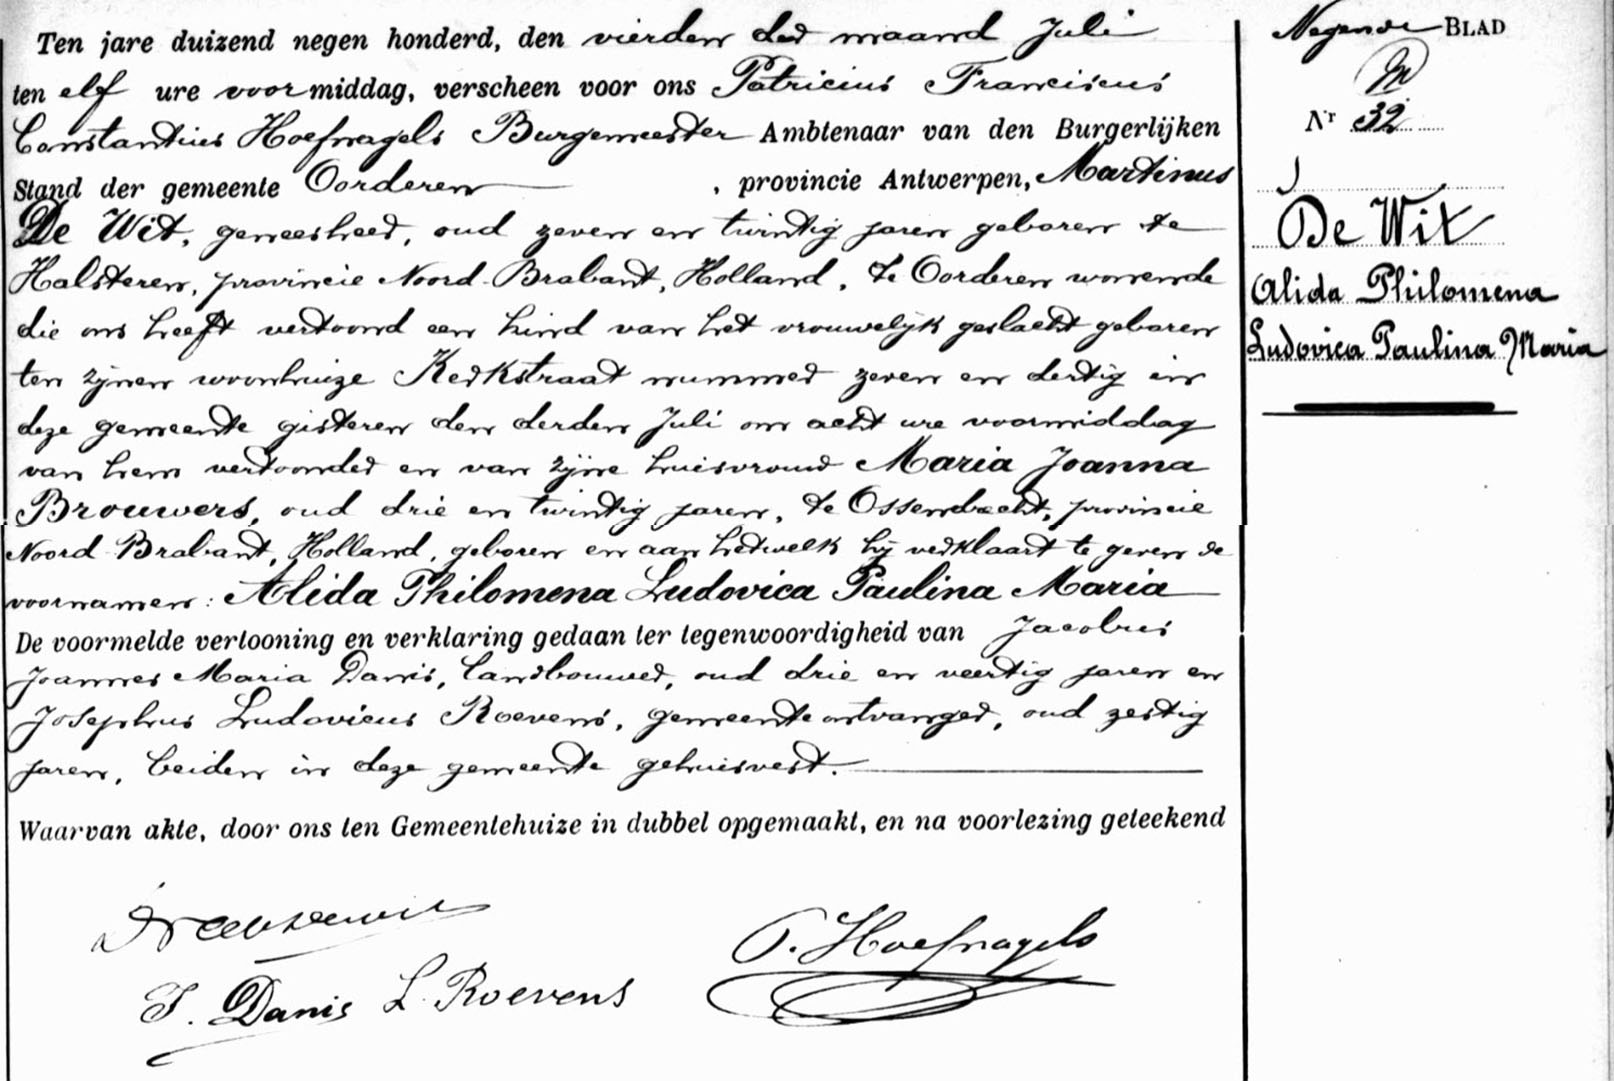 Ten jare duizend negen honderd, den vierden der maand Juli
ten elf ure voormiddag, verscheen voor ons Patricius Franciscus
Constantius Hoefnagels Burgemeester Ambtenaar van den Burgerlijken
Stand der gemeente Oorderen , provincie Antwerpen, Martinus
De Wit, geneesheer, oud zeven en twintig jaren geboren te
Halsteren, provincie Noord-Brabant, Holland, te Oorderen wonende
die ons heeft vertoond een kind van het vrouwelijk geslacht geboren
ten zijnen woonhuize Kerkstraat nummer zeven en dertig in
deze gemeente gisteren den derden Juli om acht ure voormiddag
van hem vertoonder en van zijne huisvrouw Maria Joanna
Brouwers, oud drie en twintig jaren, te Ossendrecht, provincie
Noord-Brabant, Holland, geboren en aan hetwelk hij verklaart te geven de
voornamen: Alida Philomena Ludovica Paulina Maria
De voormelde vertooning en verklaring gedaan ter tegenwoordigheid van Jacobus
Joannes Maria Danis, landbouwer, oud drie en veertig jaren en
Josephus Ludovicus Roevens, gemeenteontvanger, oud zestig
jaren, beiden in deze gemeente gehuisvest.
Waarvan akte, door ons ten Gemeentehuize in dubbel opgemaakt, en na voorlezing geteekend
P. Hoefnagels
J. Danis L. Roevens
Negende BLAD
Nr 32
De Wit
Alida Philomena
Ludovica Paulina Maria